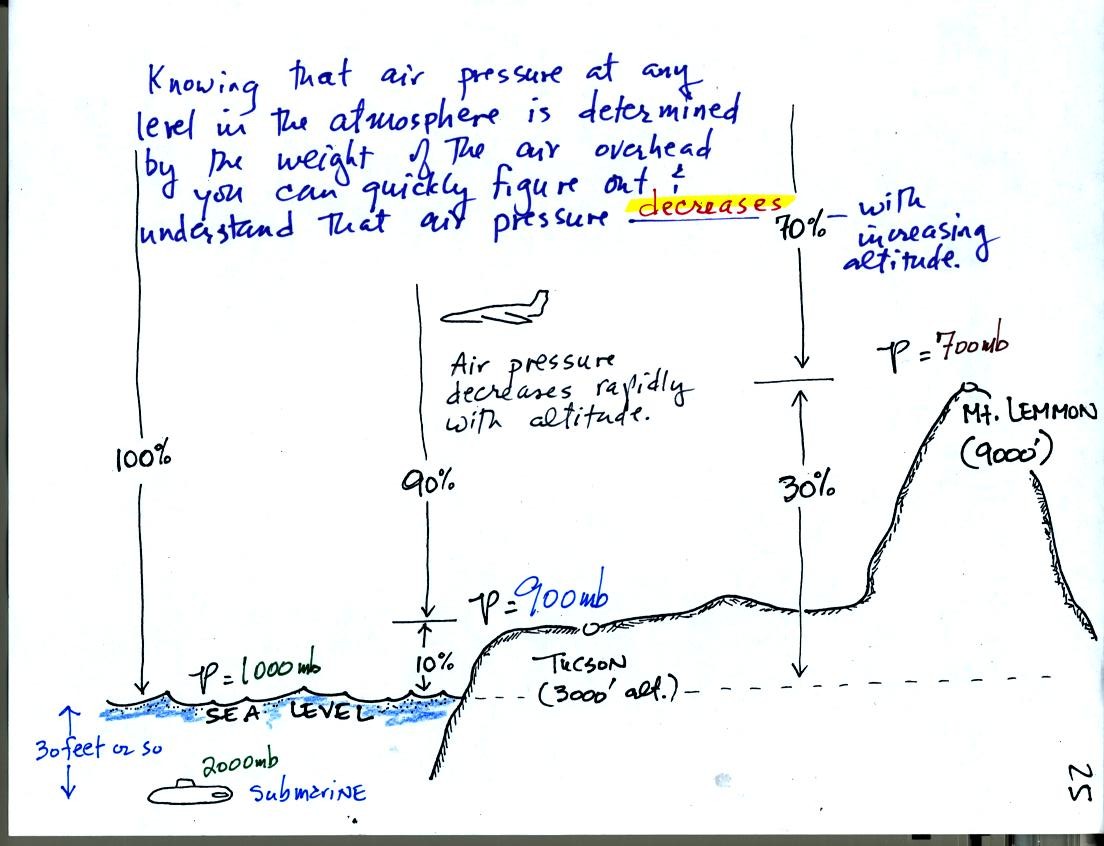 Knowing that air pressure at any
level in the atmosphere is determined
by the weight of the air overhead
you can quickly figure out &
understand that air pressure decreases
with
increasing
altitude.
70%
Air pressure
decreases rapidly
with altitude.
P = 700mb
Mt. LEMMON
(9000')
100%
90%
30%
P = 900mb
10%
TUCSON
(3000' alt.)
P = 1000mb
SEA LEVEL
30 feet or so
2000mb
SubmariNE
25